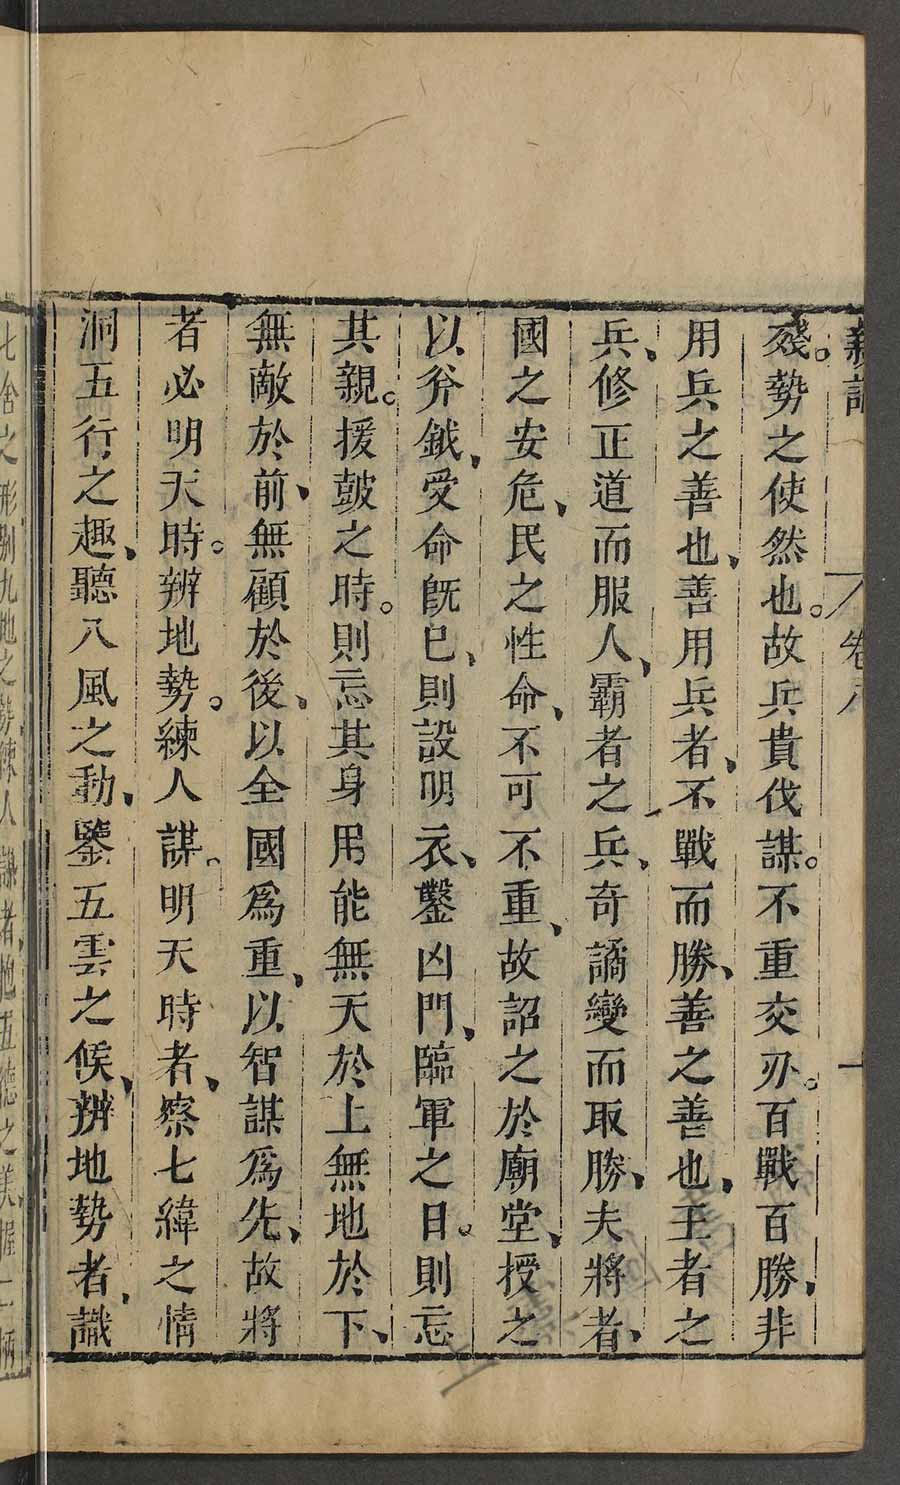 新論
卷八
殘。勢之使然也。故兵貴伐謀。不重交刃。百戰百勝、非
用兵之善也、善用兵者、不戰而勝、善之善也、王者之
兵、修正道而服人、霸者之兵、奇譎變而取勝、夫將者、
國之安危、民之性命、不可不重、故詔之於廟堂、授之
以斧鉞、受命旣已、則設明衣、鑿凶門、臨軍之日。則忘
其親。援皷之時。則忘其身用能無天於上無地於下、
無敵於前、無顧於後、以全國爲重、以智謀爲先、故將
者必明天時。辨地勢。練人謀。明天時者、察七緯之情
洞五行之趣、聽八風之動、鑒五雲之候、辨地勢者、識
七舍之形列九地之勢練人謀者、抱五德之美握二柄